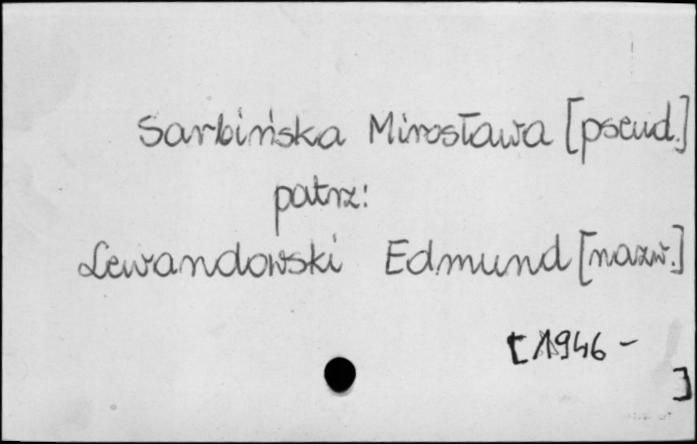 Sarbińska Mirosława [pseud.]
patrz:
Lewandowski Edmund [nazw.]
[1946 -
]